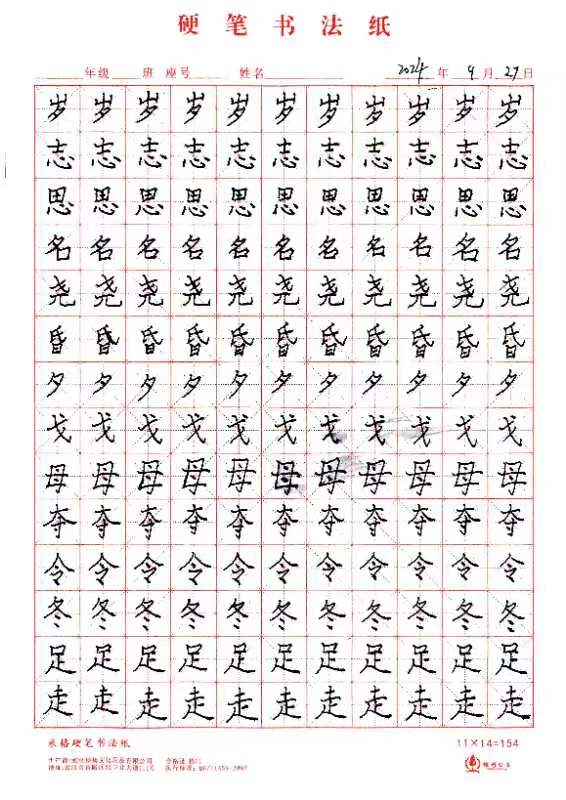 硬笔书法纸
年级 班 座号 姓名 2024 年 9 月 27 日
岁岁岁岁岁岁岁岁岁岁岁
志志志志志志志志志志志
思思思思思思思思思思思
名名名名名名名名名名名
尧尧尧尧尧尧尧尧尧尧尧
昏昏昏昏昏昏昏昏昏昏昏
夕夕夕夕夕夕夕夕夕夕夕
戈戈戈戈戈戈戈戈戈戈戈
母母母母母母母母母母母
夺夺夺夺夺夺夺夺夺夺夺
令令令令令令令令令令令
冬冬冬冬冬冬冬冬冬冬冬
足足足足足足足足足足足
走走走走走走走走走走走
米格硬笔书法纸
11×14=154